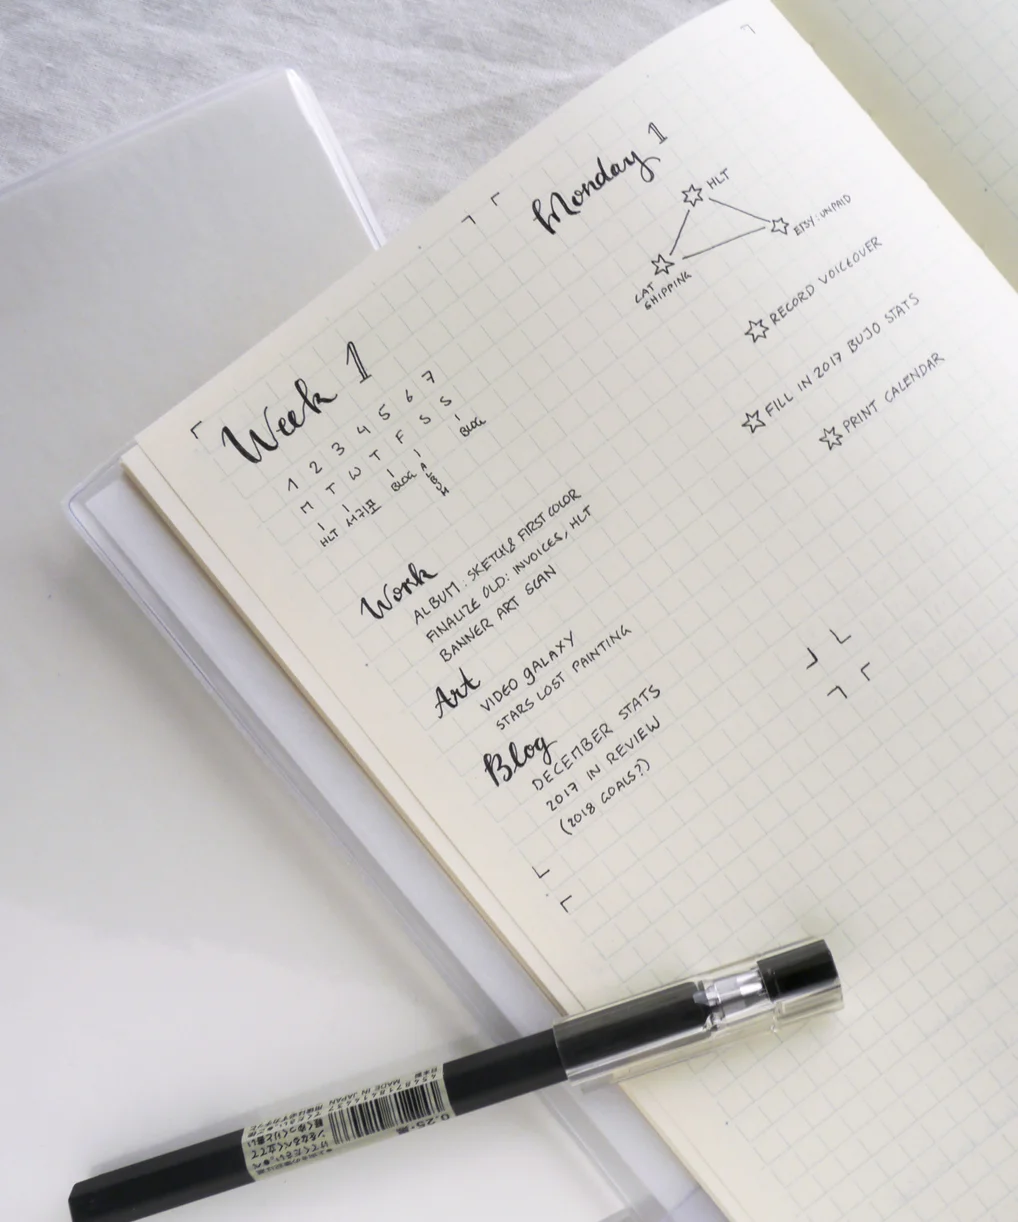 Week 1
1 2 3 4 5 6 7
M T W T F S S
HLT 서귀포 BLOG ALBUM BLOG
Work
ALBUM: SKETCH & FIRST COLOR
FINALIZE OLD: INVOICES, HLT
BANNER ART SCAN
Art
VIDEO GALAXY
STARS LOST PAINTING
Blog
DECEMBER STATS
2017 IN REVIEW
(2018 GOALS?)
Monday 1
HLT
ETSY: UNPAID
CAT
SHIPPING
RECORD VOICEOVER
FILL IN 2017 BUJO STATS
PRINT CALENDAR
0.25・黒
MADE IN JAPAN
日本製